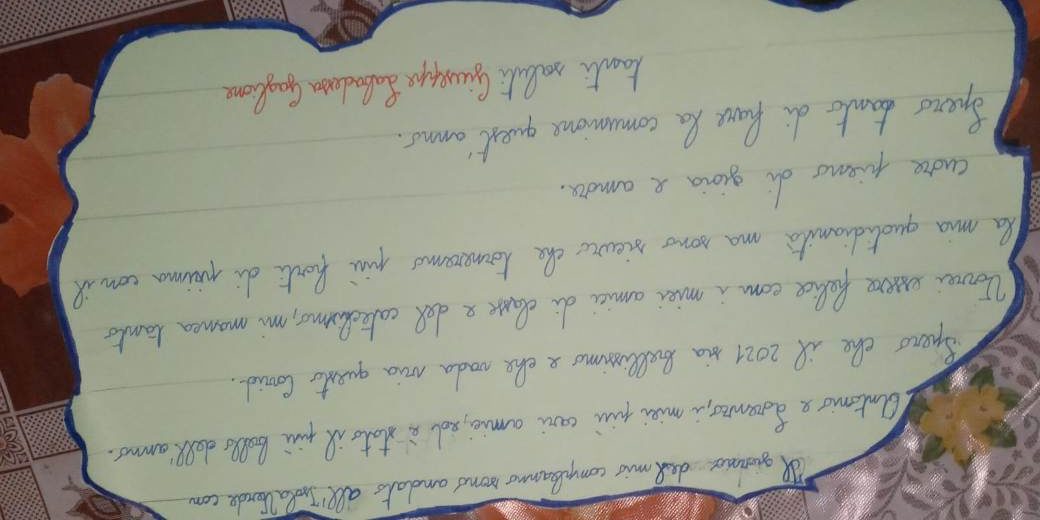 Il giorno del mio compleanno sono andato all'Isola Verde con
Antonio e Lorenzo, i miei più cari amici, ed è stato il più bello dell'anno.
Spero che il 2021 sia bellissimo e che vada via questo Covid.
Vorrei essere felice con i miei amici di classe e del catechismo, mi manca tanto
la mia quotidianità ma sono sicuro che torneremo più forti di prima con il
cuore pieno di gioia e amore.
Spero tanto di fare la comunione quest'anno.
tanti saluti Giuseppe Labadessa Gaglione